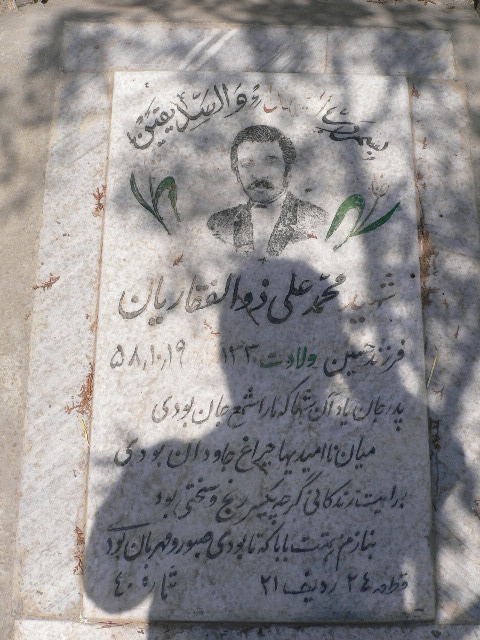 بسم رب الشهداء والصدیقین
شهید محمد علی ذوالفقاریان
فرزند حسین ولادت ۱۳۳۰ ۵۸,۱۰,۱۹
پدر جان یاد آن شبها که ما را شمع جان بودی
میان ناامیدیها چراغ جاودان بودی
برایت زندگانی گرچه یکسر رنج و سختی بود
بنازم همتت بابا که تا بودی صبور و مهربان بودی
قطعه ۲۴ ردیف ۲۱ شماره ۴۰